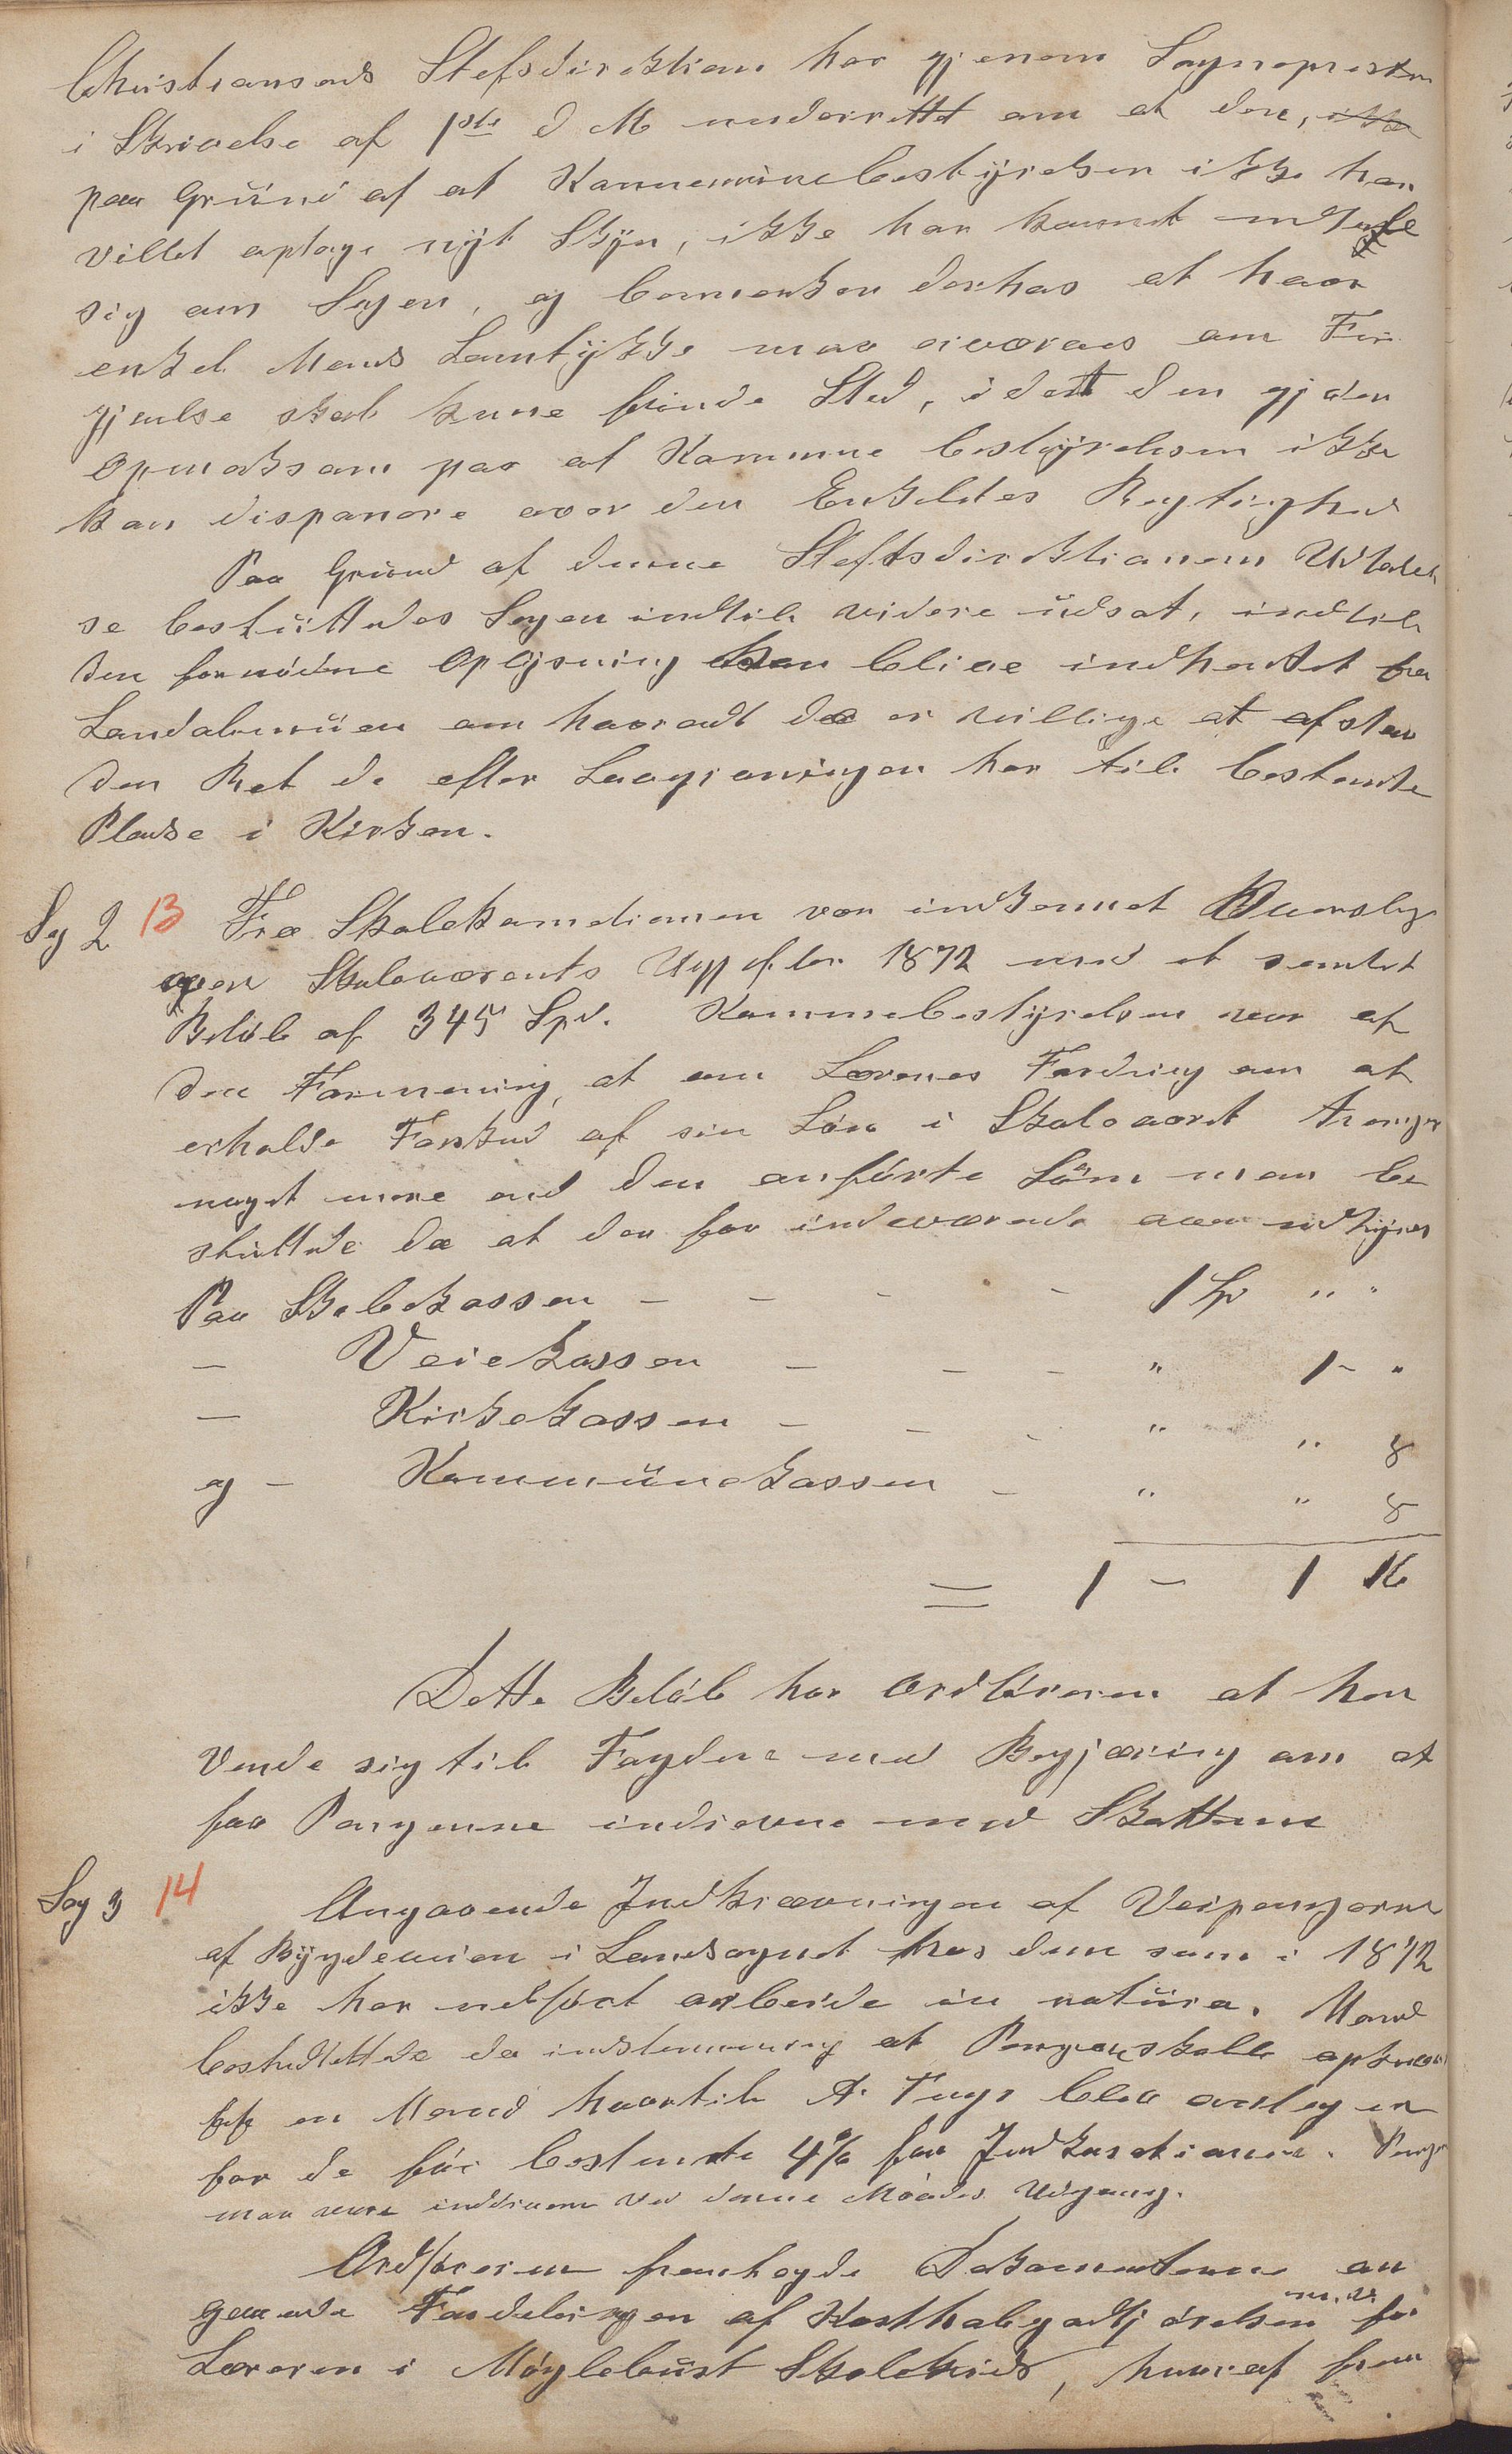 Christiansands Stefsdirektion har gjenem Sognepresten
i Skrivelse af 1ste d M underrettet om at den, ikke
paa Grund af at Kommunebestyrelsen ikke har
villet optage nyt Skjøn, ikke har kunnet udtale
sig om Sagen, og bemerker derhos at hver
enkel Mands Samtykke maa erværves om
skal kune finde Sted, idett den gjør
opmerksom paa at Kommune bestyrelsen ikke
kan disponere over den Enkeltes Regtighed
Paa Grund af denne Steftsdirektionens Udtalel
se besluttedes Sagen indtil videre udsat, indtil
den fornødne Oplysning kan blive indhentet fra
Landalmuen om hvorvidt de er villige at afstaa
den Ret de efter Lovgivningen har til bestemte
Pladse i Kirken.
Sag 2 13 Fra Skolekomitionen var indkommet
over Skolevæsents Udgifter 1872 med et samlet
Beløb af 345 Spd. Kommebestyrelsen var af
den Formening, at om Lærernes Fordring om at
erholde Forskud af sin Løn i Skoleaaret trenges
noget mere end den anførte Søm man be
sluttede da at der for indeværende aar udlignes
Paa Skolekassen - - - - 1 Sp " "
- Veiekassen - - - " 1 - "
- Kirkekassen - - - " " 8
og - Kommunekassen - " " 8
= 1 - 1 16
Dette Beløb har Ordføreren at hen
vende sig til Fogden med Begjæring om at
faa Pengenne inddrevne med Skatten
Sag 3 14 Angaaende Indkrævningen af Veipengerne
af Bygdeveien i Landsognet hos dem som i 1872
ikke har udført arbeide in natura. Mand
besluttede da indstemmig at Pengene skulle opkræves
af en Mand hvortil A. Fuge blev antagen
for de før bestemte 4% for Indkassationen. Penge
maa være inddrevne ved denne Maaneds Udgang.
Ordføreren fremlagde Dokumenterne an
gaaende Fordelingen af Kostholdgodtjørelsen m.v. for
Læreren i Møglebust Skolekrids, hvoraf frem